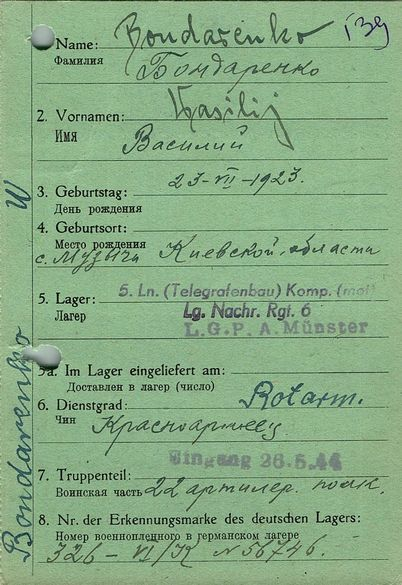 Name: Bondarenko
Фамилия Бондаренко
2. Vornamen: Wasilij
Имя Василий
3. Geburtstag: 23-VII-1923.
День рождения
4. Geburtsort:
Место рождения Киевской области
с. Музычи
5. Lager: 5. Ln. (Telegrafenbau) Komp. (mot)
Лагер Lg. Nachr. Rgt. 6
L.G.P.A. Münster
5a. Im Lager eingeliefert am:
Доставлен в лагер (число)
6. Dienstgrad: Rotarm.
Чин Красноармеец
Eingang 26.5.44
7. Truppenteil:
Воинская часть 22 артилер. полк.
8. Nr. der Erkennungsmarke des deutschen Lagers:
Номер военнопленного в германском лагере
326 - VI/K N 56746.
Bondarenko W